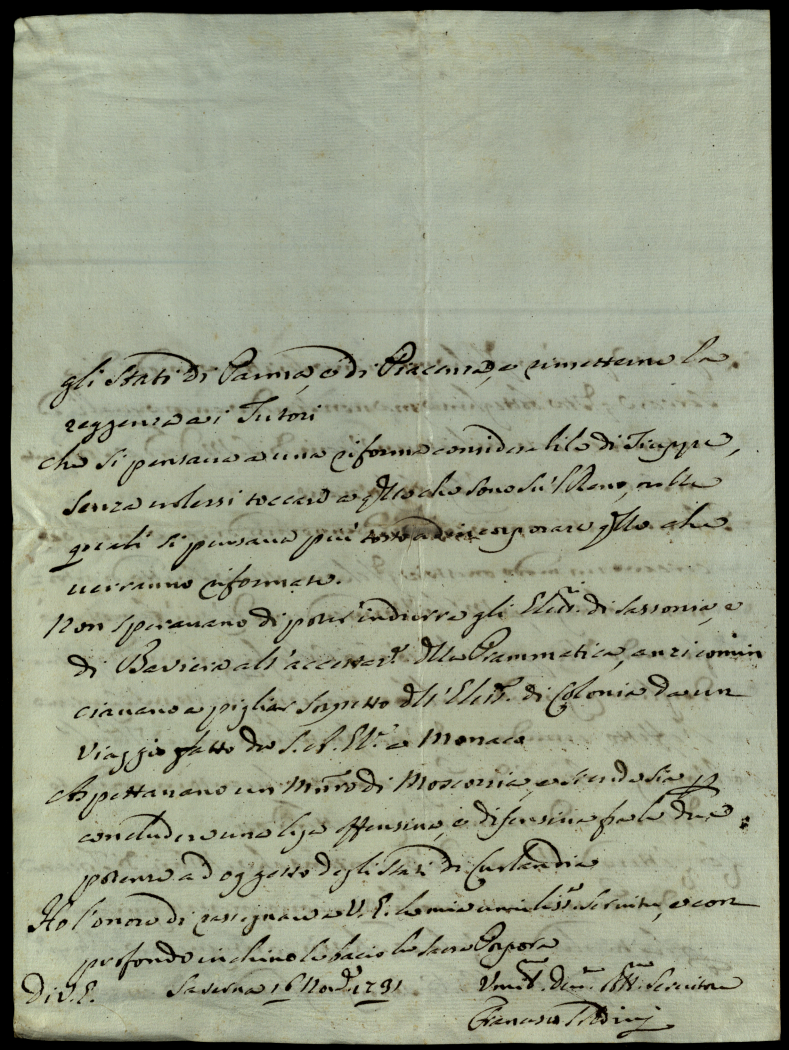 gli Stati di Parma, e di Piacenza, e rimetterne la
reggenza a i Tutori
che si pensava a una riforma considerabile di Truppe,
senza volersi toccare a qlle che sono sù'l Reno, nelle
quali si pensava più tosto ad incorporare qlle che
verranno riformate.
Non speravano di poter' indurre gli Elett.ri di Sassonia, e
di Baviera all' accessar.e della Prammatica, anzi comin
ciavano a pigliar sospetto dell' Elett.r di Colonia da un
viaggio fatto da S. A. El. a Monaco
Aspettavano un Mñro di Moscovia, essendo sia p
concludere una lega offensiva, e difensiva fra le due
potenze ad oggetto degli Stati di Curlandia
Ho l'onore di rassegnare a V. E. la mia umiliss.a Servitù, e con
profondo inchino le bacio la Sacra Porpora
Di V. E. Saverna 16 Nov.e 1731 Umil.o Dev.o Obb.o Servitore
Francesco